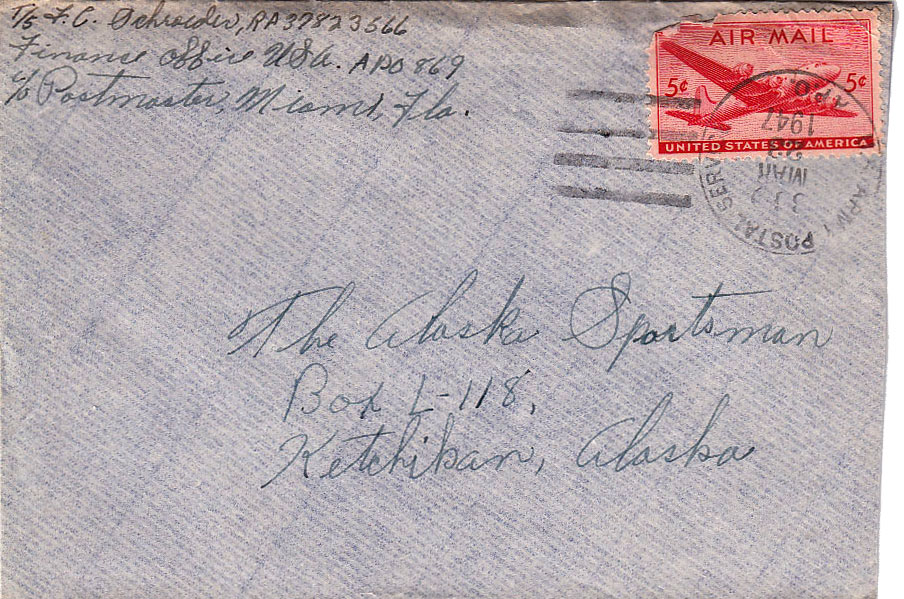 T/5 F.C. Schroeder, RA37823566
Finance Office USA. APO 869
c/o Postmaster, Miami, Fla.
AIR MAIL
5¢ 5¢
UNITED STATES OF AMERICA
POSTAL SERVICE
MAR
1947
A.P.O.
The Alaska Sportsman
Box L-118,
Ketchikan, Alaska